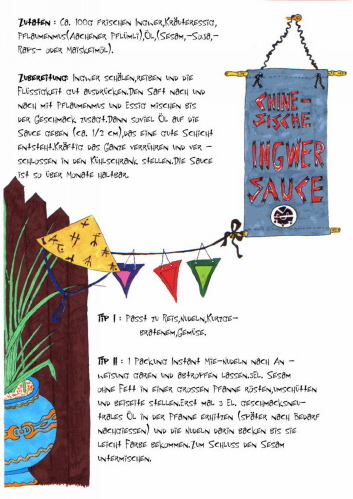 Zutaten : Ca. 100g frischen Ingwer,Kräuteressig,
Pflaumenmus(Aachener Pflümli),Öl,(Sesam,-Soja,-
Raps- oder Maiskeimöl).
Zubereitung: Ingwer schälen,reiben und die
Flüssigkeit gut ausdrücken.Den Saft nach und
nach mit Pflaumenmus und Essig mischen bis
der Geschmack zusagt.Dann soviel Öl auf die
Sauce geben (ca. 1/2 cm),das eine gute Schicht
entsteht.Kräftig das Ganze verrühren und ver -
schlossen in den Kühlschrank stellen.Die Sauce
ist so über Monate haltbar.
CHINE-
SISCHE
INGWER
SAUCE
Tip I : Passt zu Reis,Nudeln,Kurzge-
bratenem,Gemüse.
Tip II : 1 Packung Instant Mie-Nudeln nach An -
weisung garen und abtropfen lassen.3El. Sesam
ohne Fett in einer grossen Pfanne rösten,umschütten
und beiseite stellen.Erst mal 3 El. geschmacksneu-
trales Öl in der Pfanne erhitzen (später nach Bedarf
nachgiessen) und die Nudeln darin backen bis sie
leicht Farbe bekommen.Zum Schluss den Sesam
untermischen.